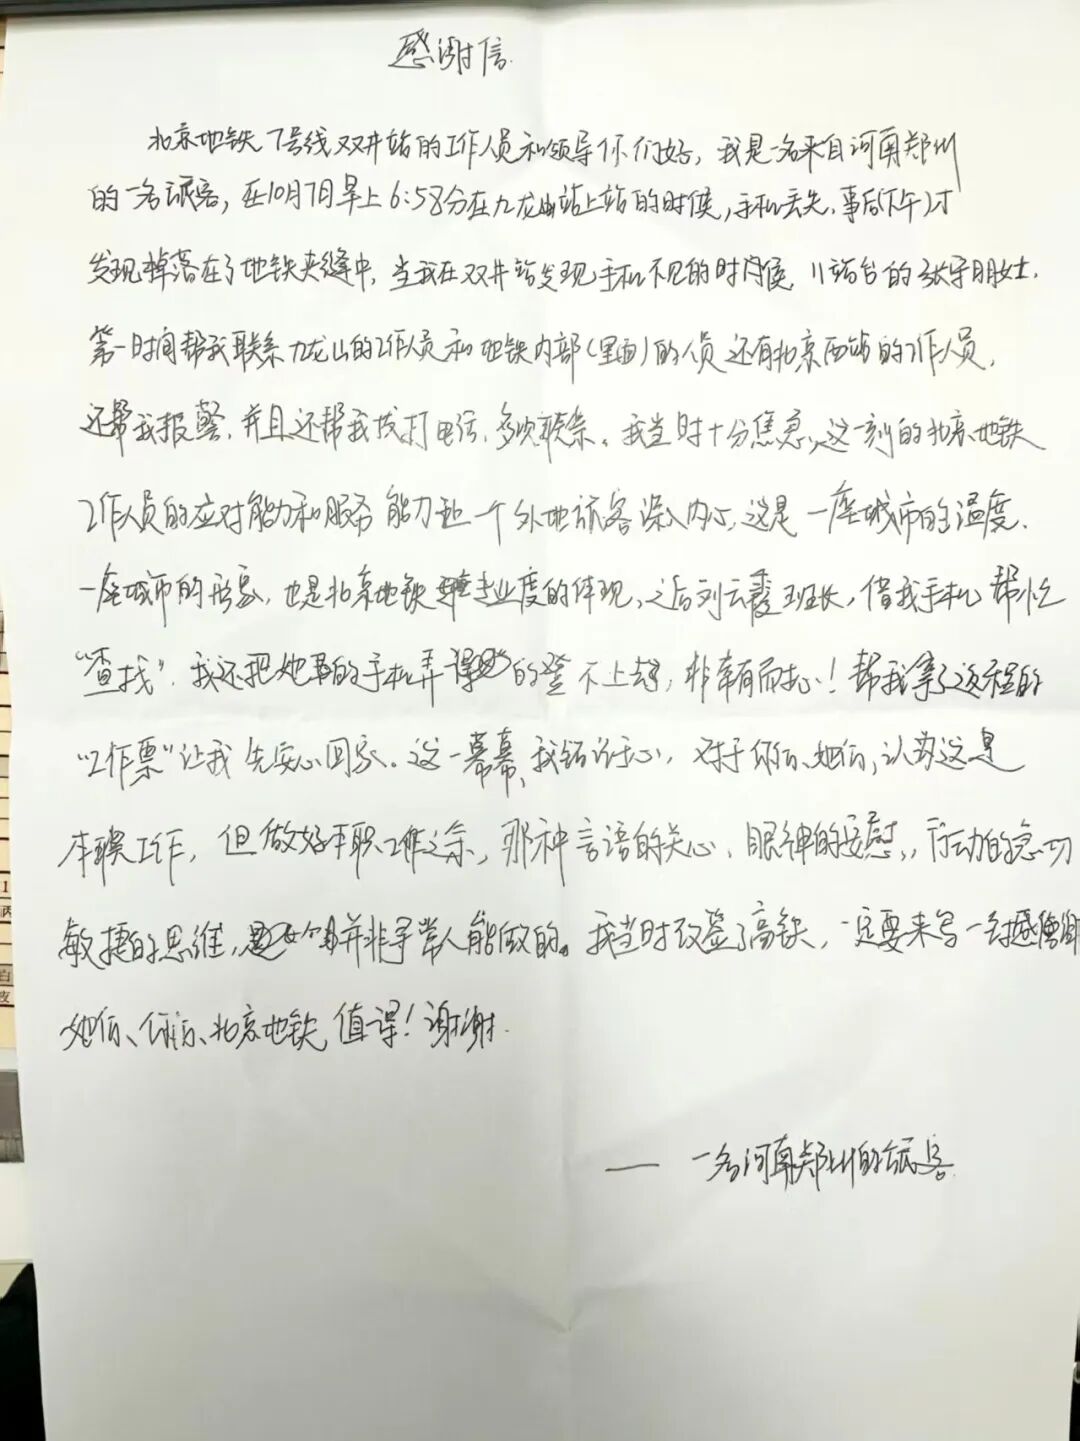 感谢信
北京地铁7号线双井站的工作人员和领导你们好,我是一名来自河南郑州
的一名旅客,在10月7日早上6:58分在九龙山站上站的时候,手机丢失,事后下午2时
发现掉落在了地铁夹缝中,当我在双井站发现手机不见的时候,站台的张宇朋女士.
第一时间帮我联系九龙山的工作人员和地铁内部(里面)的人员还有北京西站的工作人员,
还帮我报警,并且还帮我拨打电话,多次联系。我当时十分焦急,这一刻的北京地铁
工作人员的应对能力和服务能力让一个外地旅客深入内心,这是一座城市的温度.
一座城市的形象,也是北京地铁专业度的体现,之后刘云霞班长,借我手机帮忙
"查找".我还把她的手机弄的登不上去,非常有耐心!帮我拿了返程的
"工作票"让我先安心回家。这一幕幕,我铭记于心,对于你们、她们,认为这是
本职工作,但做好本职工作之余,那种言语的关心、眼神的安慰,行动的急切
敏捷的思维,并非寻常人能做的。我当时改签了高铁,一定要来写一封感谢
她们、你们、北京地铁,值得!谢谢.
—— 一名河南郑州的旅客